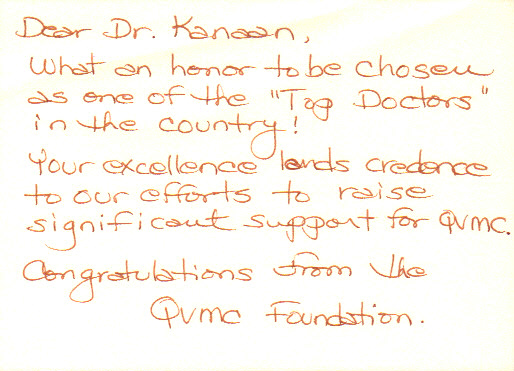 Dear Dr. Kanaan,
What an honor to be chosen
as one of the "Top Doctors"
in the country!
Your excellence lends credence
to our efforts to raise
significant support for QVMC.
Congratulations from the
QVMC Foundation.